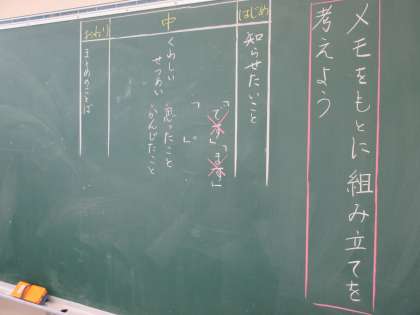 メモをもとに組み立てを
考えよう
はじめ
知らせたいこと
「です」「ます」
「 」
中
くわしい
せつめい
思ったこと
かんじたこと
おわり
まとめのことば